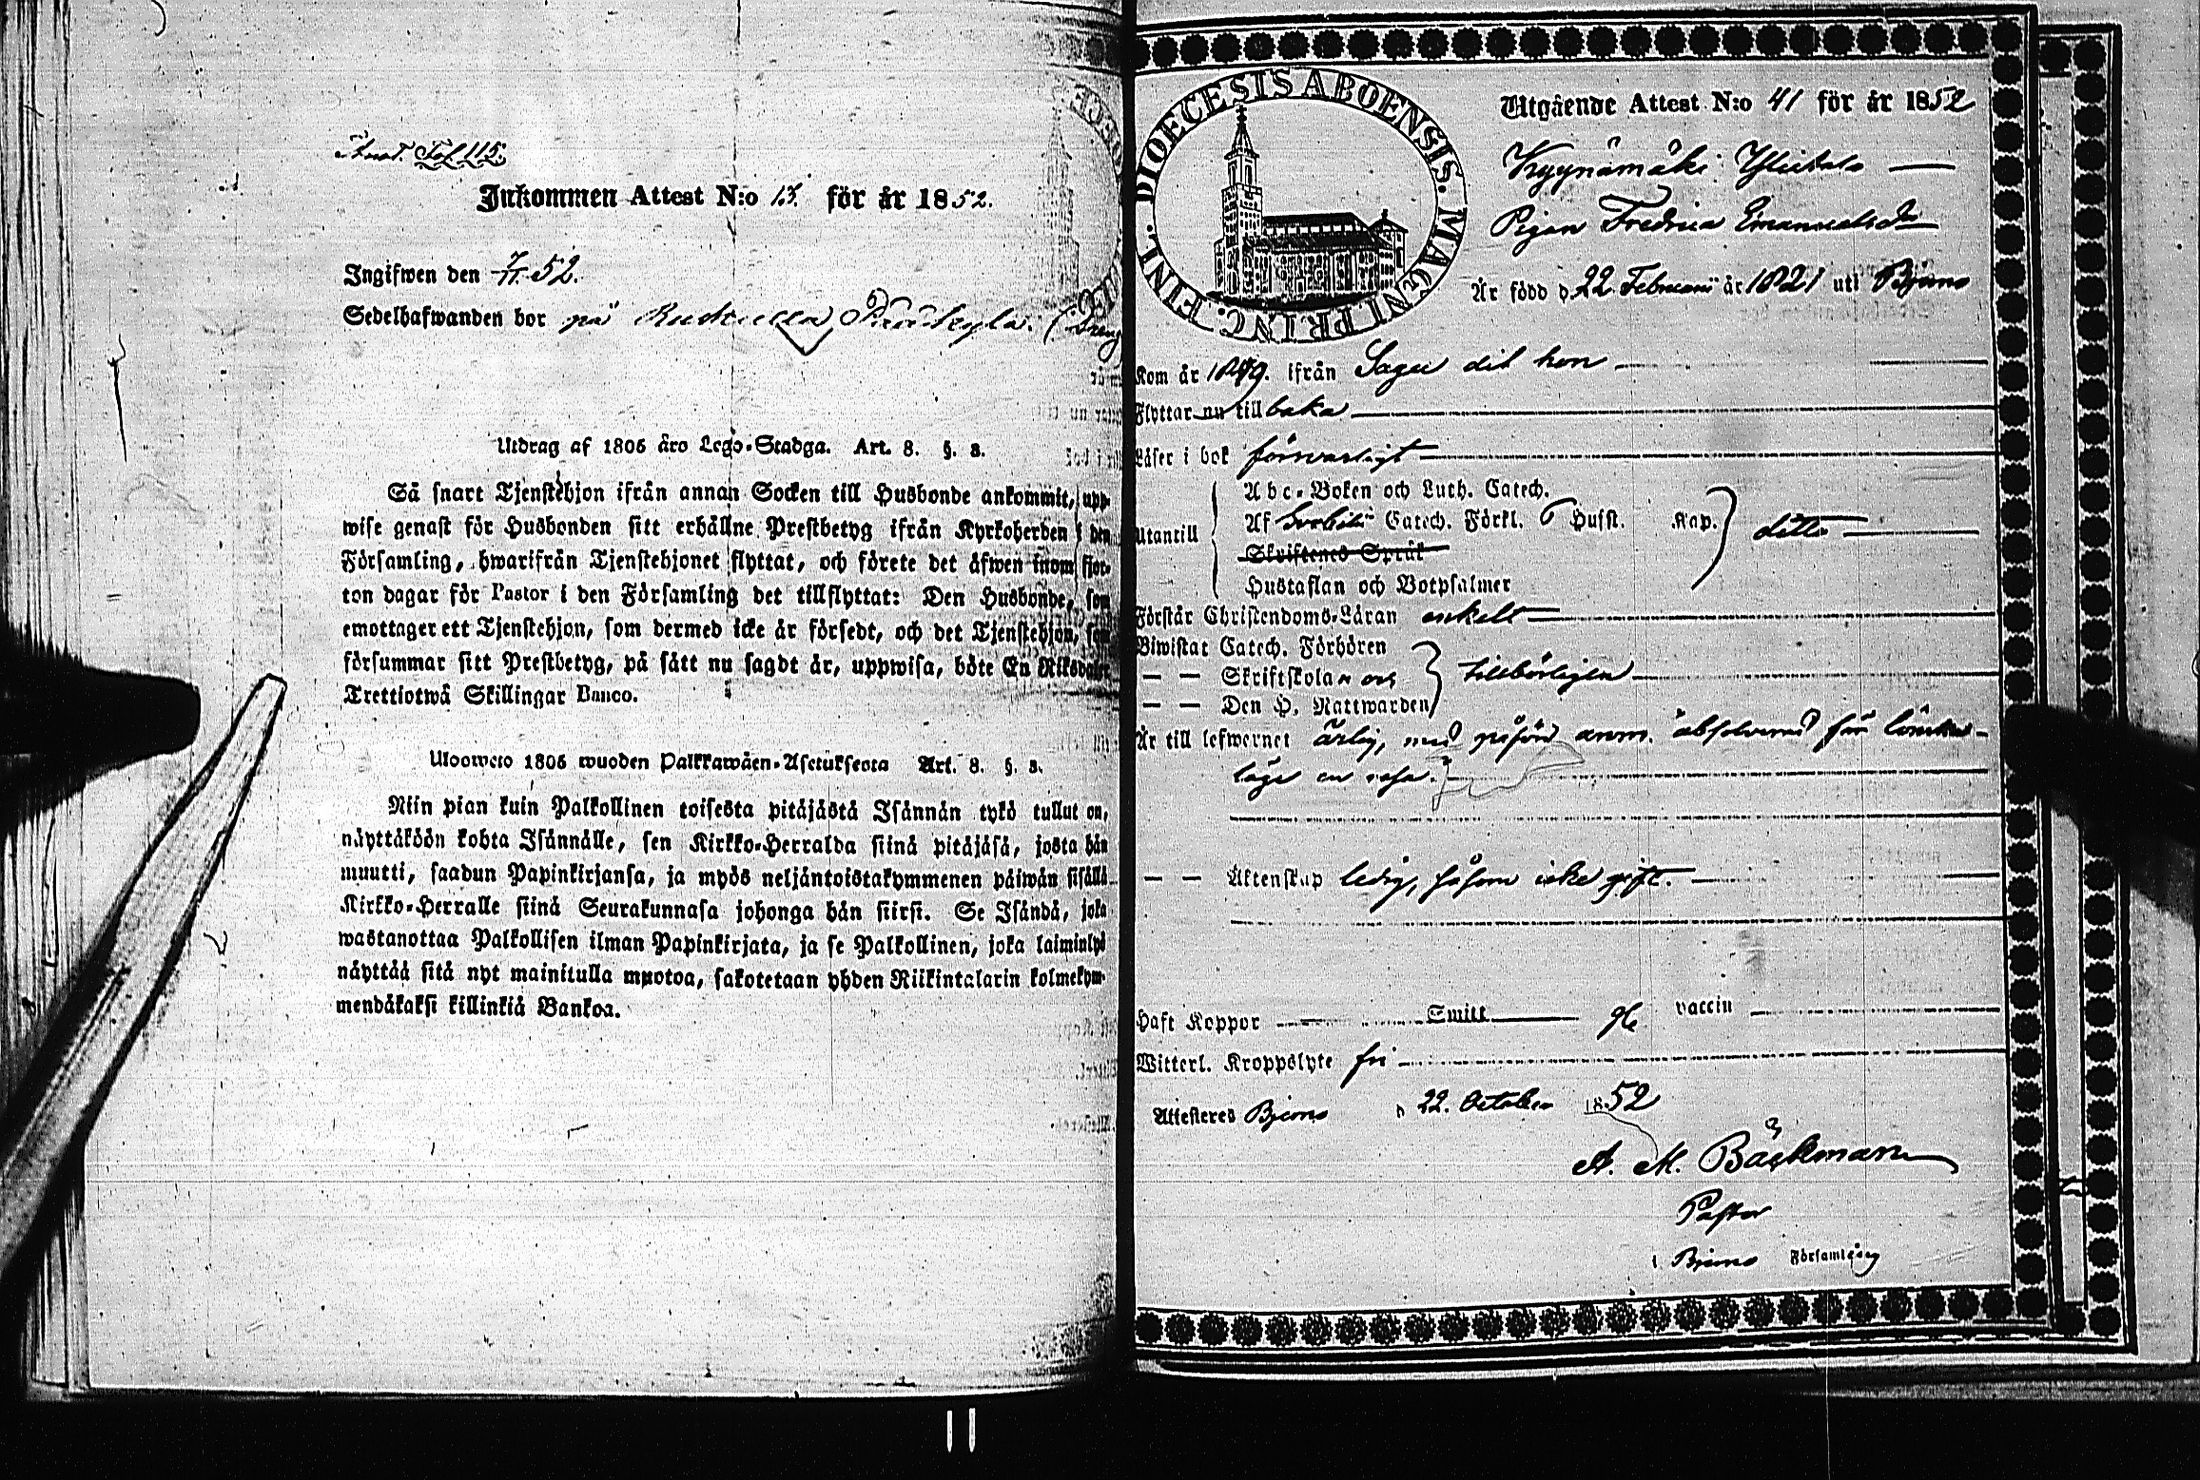 Fol 115.
Inkommen Attest N:o 13. för år 1852.
Ingifwen den 7/11 52.
Sedelhafwanden bor på
Utdrag af 1805 års Lego-Stadga. Art. 8. §. 3.
Så snart Tjenstehjon ifrån annan Socken till Husbonde ankommit, upp-
wise genast för Husbonden sitt erhållne Prestbetyg ifrån Kyrkoherden i den
Församling, hwarifrån Tjenstehjonet flyttat, och förete det äfwen inom fjor-
ton dagar för Pastor i den Församling det tillflyttat: Den Husbonde, som
emottager ett Tjenstehjon, som dermed icke är försedt, och det Tjenstehjon, som
försummar sitt Prestbetyg, på sätt nu sagdt är, uppwisa, böte En Riksdaler
Trettiotwå Skillingar Banco.
Ulosweto 1805 wuoden Palkkawäen-Asetuksesta Art. 8. §. 3.
Niin pian kuin Palkollinen toisesta pitäjästä Isännän tykö tullut on,
näyttäköön kohta Isännälle, sen Kirkko-Herralda siinä pitäjäsä, josta hän
muutti, saadun Papinkirjansa, ja myös neljäntoistakymmenen päiwän sisällä
Kirkko-Herralle siinä Seurakunnasa johonga hän siirsi. Se Isändä, joka
wastanottaa Palkollisen ilman Papinkirjata, ja se Palkollinen, joka laiminlyö
näyttää sitä nyt mainitulla muotoa, sakotetaan yhden Riikintalarin kolmekym-
mendäkaksi killinkiä Bankoa.
DIOECESIS ABOENSIS. MAGNI PRINC. FINL.
Utgående Attest N:o 41 för år 1852
Kyynämäki Ylikala
Pigan Fredrica Emanuelsdr
Är född d. 22 Februarii år 1821 uti Bjerno
Kom år 1849. ifrån Sagu dit hon
Flyttar nu tillbaka
Läser i bok försvarligt
Abc-Boken och Luth. Catech.
Utantill Af Svebilii Catech. Förkl. 6 Hufst. Kap. ditto
Skriftenes Språk
Hustaflan och Botpsalmer
Förstår Christendoms-Läran enkelt
Biwistat Catech. Förhören
— — Skriftskolan och tillbörligen
— — Den H. Nattwarden
Är till lefwernet ärlig, med påförd anm. absolverad för lönska-
läge en resa.
— — Äktenskap ledig, såsom icke gift.
Haft Koppor Smitt vaccin
Witterl. Kroppslyte fri
Attesteres Bjerno d 22. October 1852
A. M. Bäckman
Pastor
i Bjerno Församling